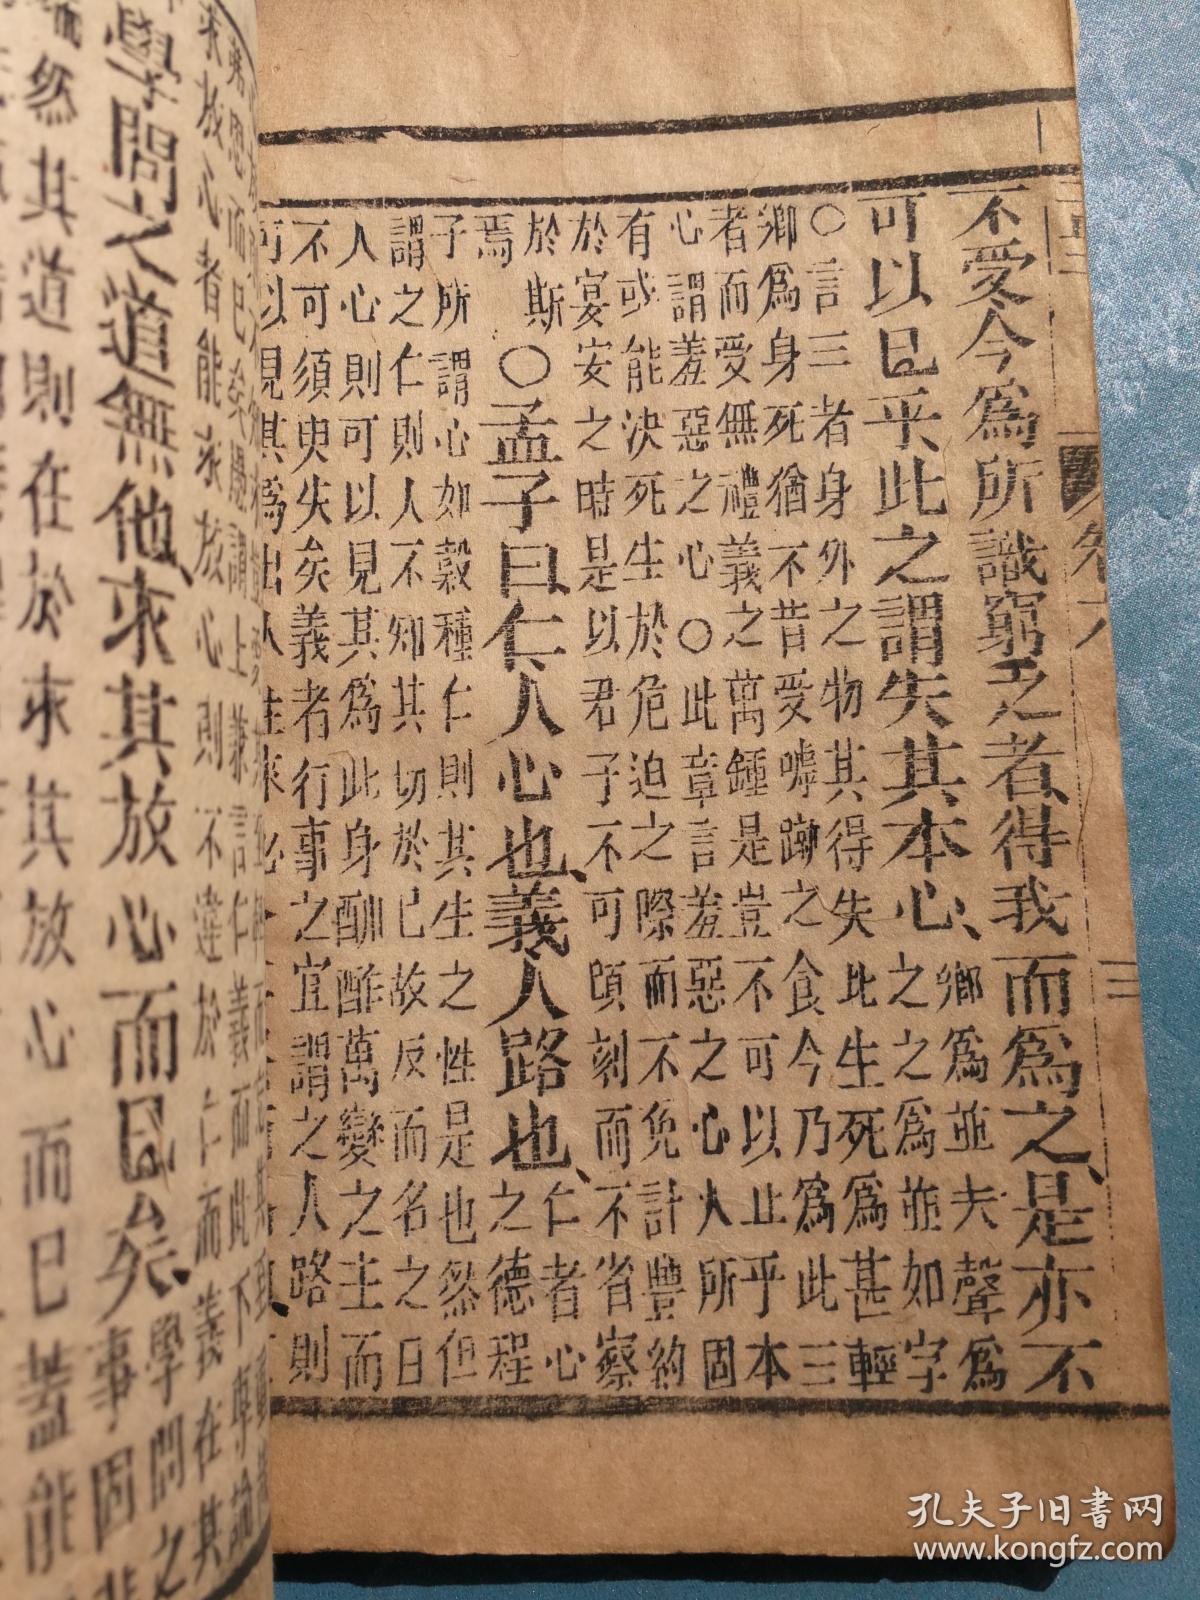 不受今爲所識窮乏者得我而爲之、是亦不
可以已乎此之謂失其本心、
鄉爲並夫聲爲
之之爲並如字
○言三者身外之物其得失比生死爲甚輕
鄉爲身死猶不肯受嘑蹴之食今乃爲此三
者而受無禮義之萬鍾是豈不可以止乎本
心謂羞惡之心○此章言羞惡之心人所固
有或能決死生於危迫之際而不免計豐約
於宴安之時是以君子不可頃刻而不省察
於斯
焉
○孟子曰、仁、人心也、義人路也、
仁者心
之德程
子所謂心如穀種仁則其生之性是也然但
謂之仁則人不知其切於己故反而名之曰
人心則可以見其爲此身酬酢萬變之主而
不可須臾失矣義者行事之宜謂之人路則
可以見其爲出入往來必
求放心者能求放心則不違於仁而義在其
學問之道無他、求其放心而已矣、
學問之
事固非
然其道則在於求其放心而已蓋能
孔夫子旧书网
www.kongfz.com